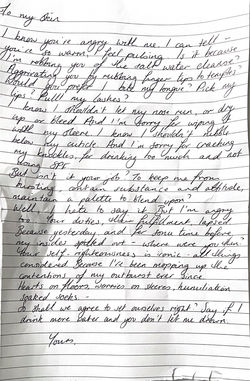 To my Skin
I know you're angry with me. I can tell -
you're so warm, I feel pulsing. Is it because
I'm robbing you of the salt water cleanse?
Aggravating you by rubbing finger tips to temples?
Would you prefer I bite my tongue? Pick my
lips? Pull my lashes?
I know I shouldn't let my nose run, or dry
up or bleed. And I'm sorry for wiping it
with my sleeve. I know I shouldn't nibble
below my cuticle. And I'm sorry for cracking
my knuckles, for drinking too much and not
wearing SPF.
But isn't it your job? To keep me from
bursting, contain substance and attitude,
maintain a palette to blend upon?
Well, I hate to say it. But I'm angry
too. Your duties, when fulfillment, lapsed.
Because yesterday, and for some time before,
my insides spilled out - where were you then?
Your self righteousness is ironic - all things
considered. Because I've been mopping up the
contentions of my outburst ever since.
Hearts on floors, worries on sleeves, humiliation
soaked socks -
So shall we agree to set ourselves right? Say if I
drink more water and you don't let me drown.
Yours,